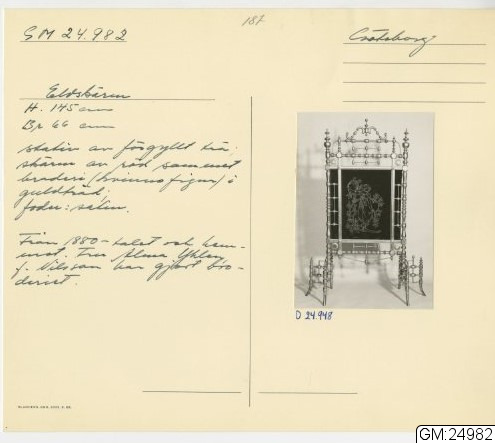 187
GM 24.982
Göteborg
Eldskärm
H. 145 cm
Br 66 cm
stativ av förgyllt trä.
skärm av röd sammet
broderi (kvinnofigur) i
guldtråd,
foder: satin.
Från 1880-talet och hem-
Fru Alma
f. Nilsson har gjort bro-
deriet.
D 24.948
GM:24982